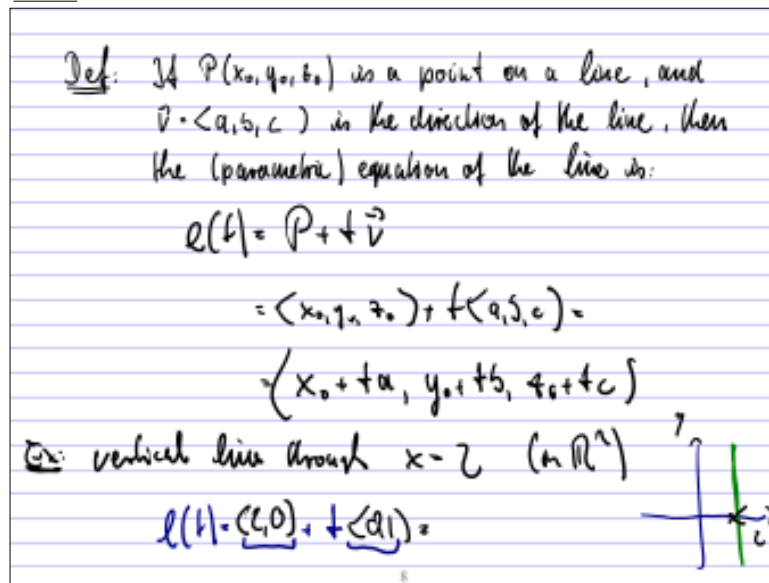 Def: If P(x₀, y₀, z₀) is a point on a line, and
v⃗ = <a, b, c> is the direction of the line, then
the (parametric) equation of the line is:
l(t) = P + t v⃗
= <x₀, y₀, z₀> + t<a, b, c> =
= <x₀ + ta, y₀ + tb, z₀ + tc>
Ex: vertical line through x = 2 (in ℝ²)
l(t) = <2, 0> + t <0, 1> =
y
2
8